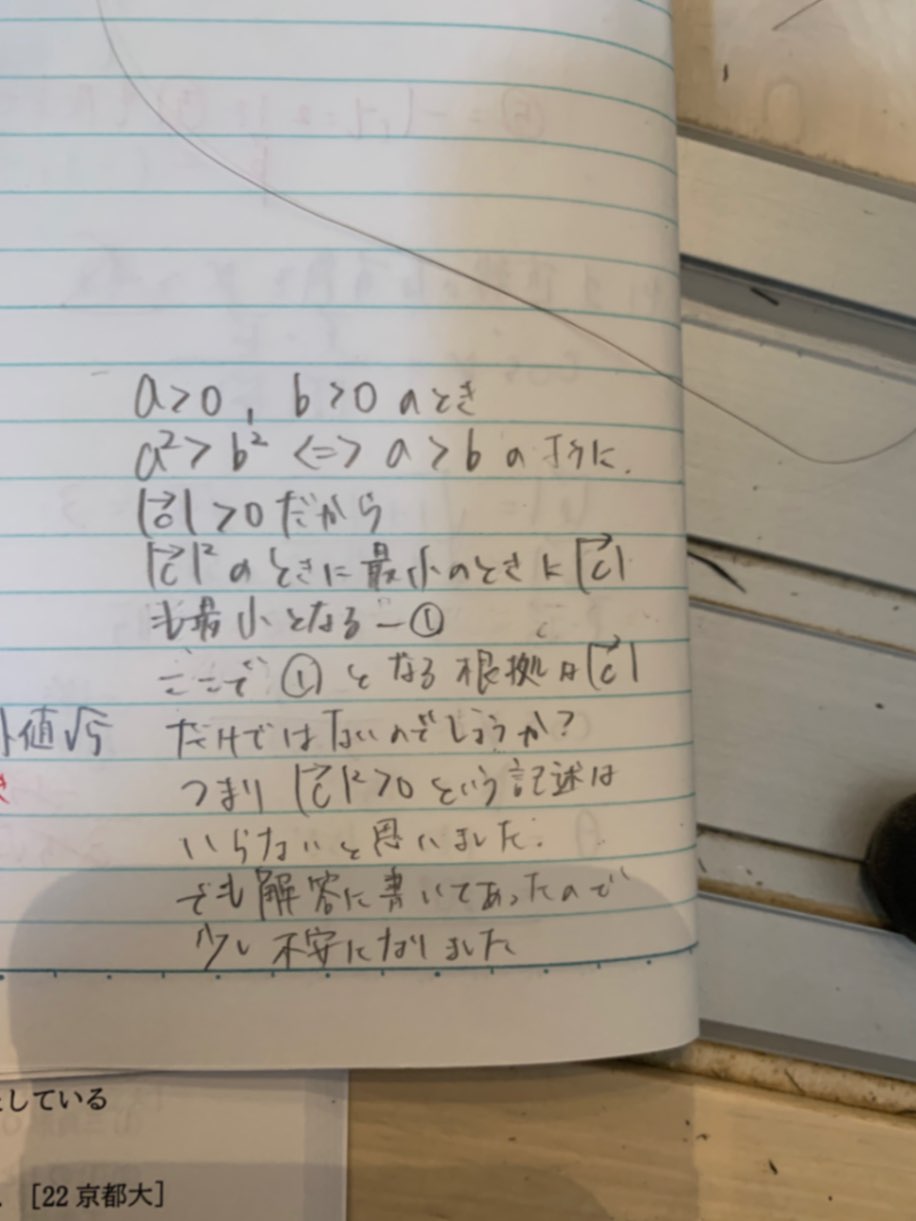 a>0, b>0 のとき
a²>b² <=> a>b のように、
|c→|>0だから
|c→|²のときに最小のときに|c→|
も最小となる－①
ここで①となる根拠は|c→|
ト値√5 だけではないのでしょうか?
つまり |c→|²>0という記述は
き
いらないと思いました.
でも解答に書いてあったので
少し不安になりました
としている
[22 京都大]